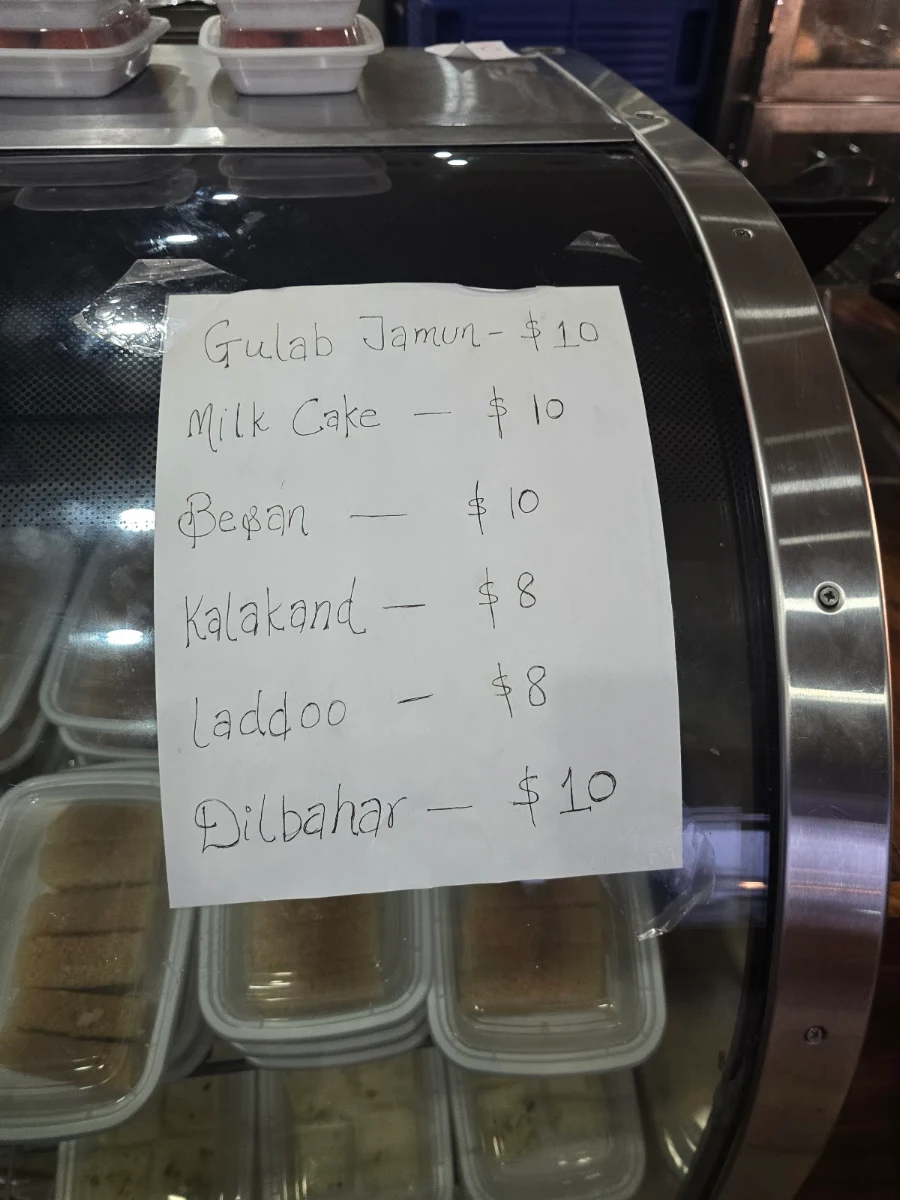 Gulab Jamun - $10
Milk Cake — $ 10
Besan — $ 10
Kalakand — $ 8
Laddoo — $8
Dilbahar — $ 10